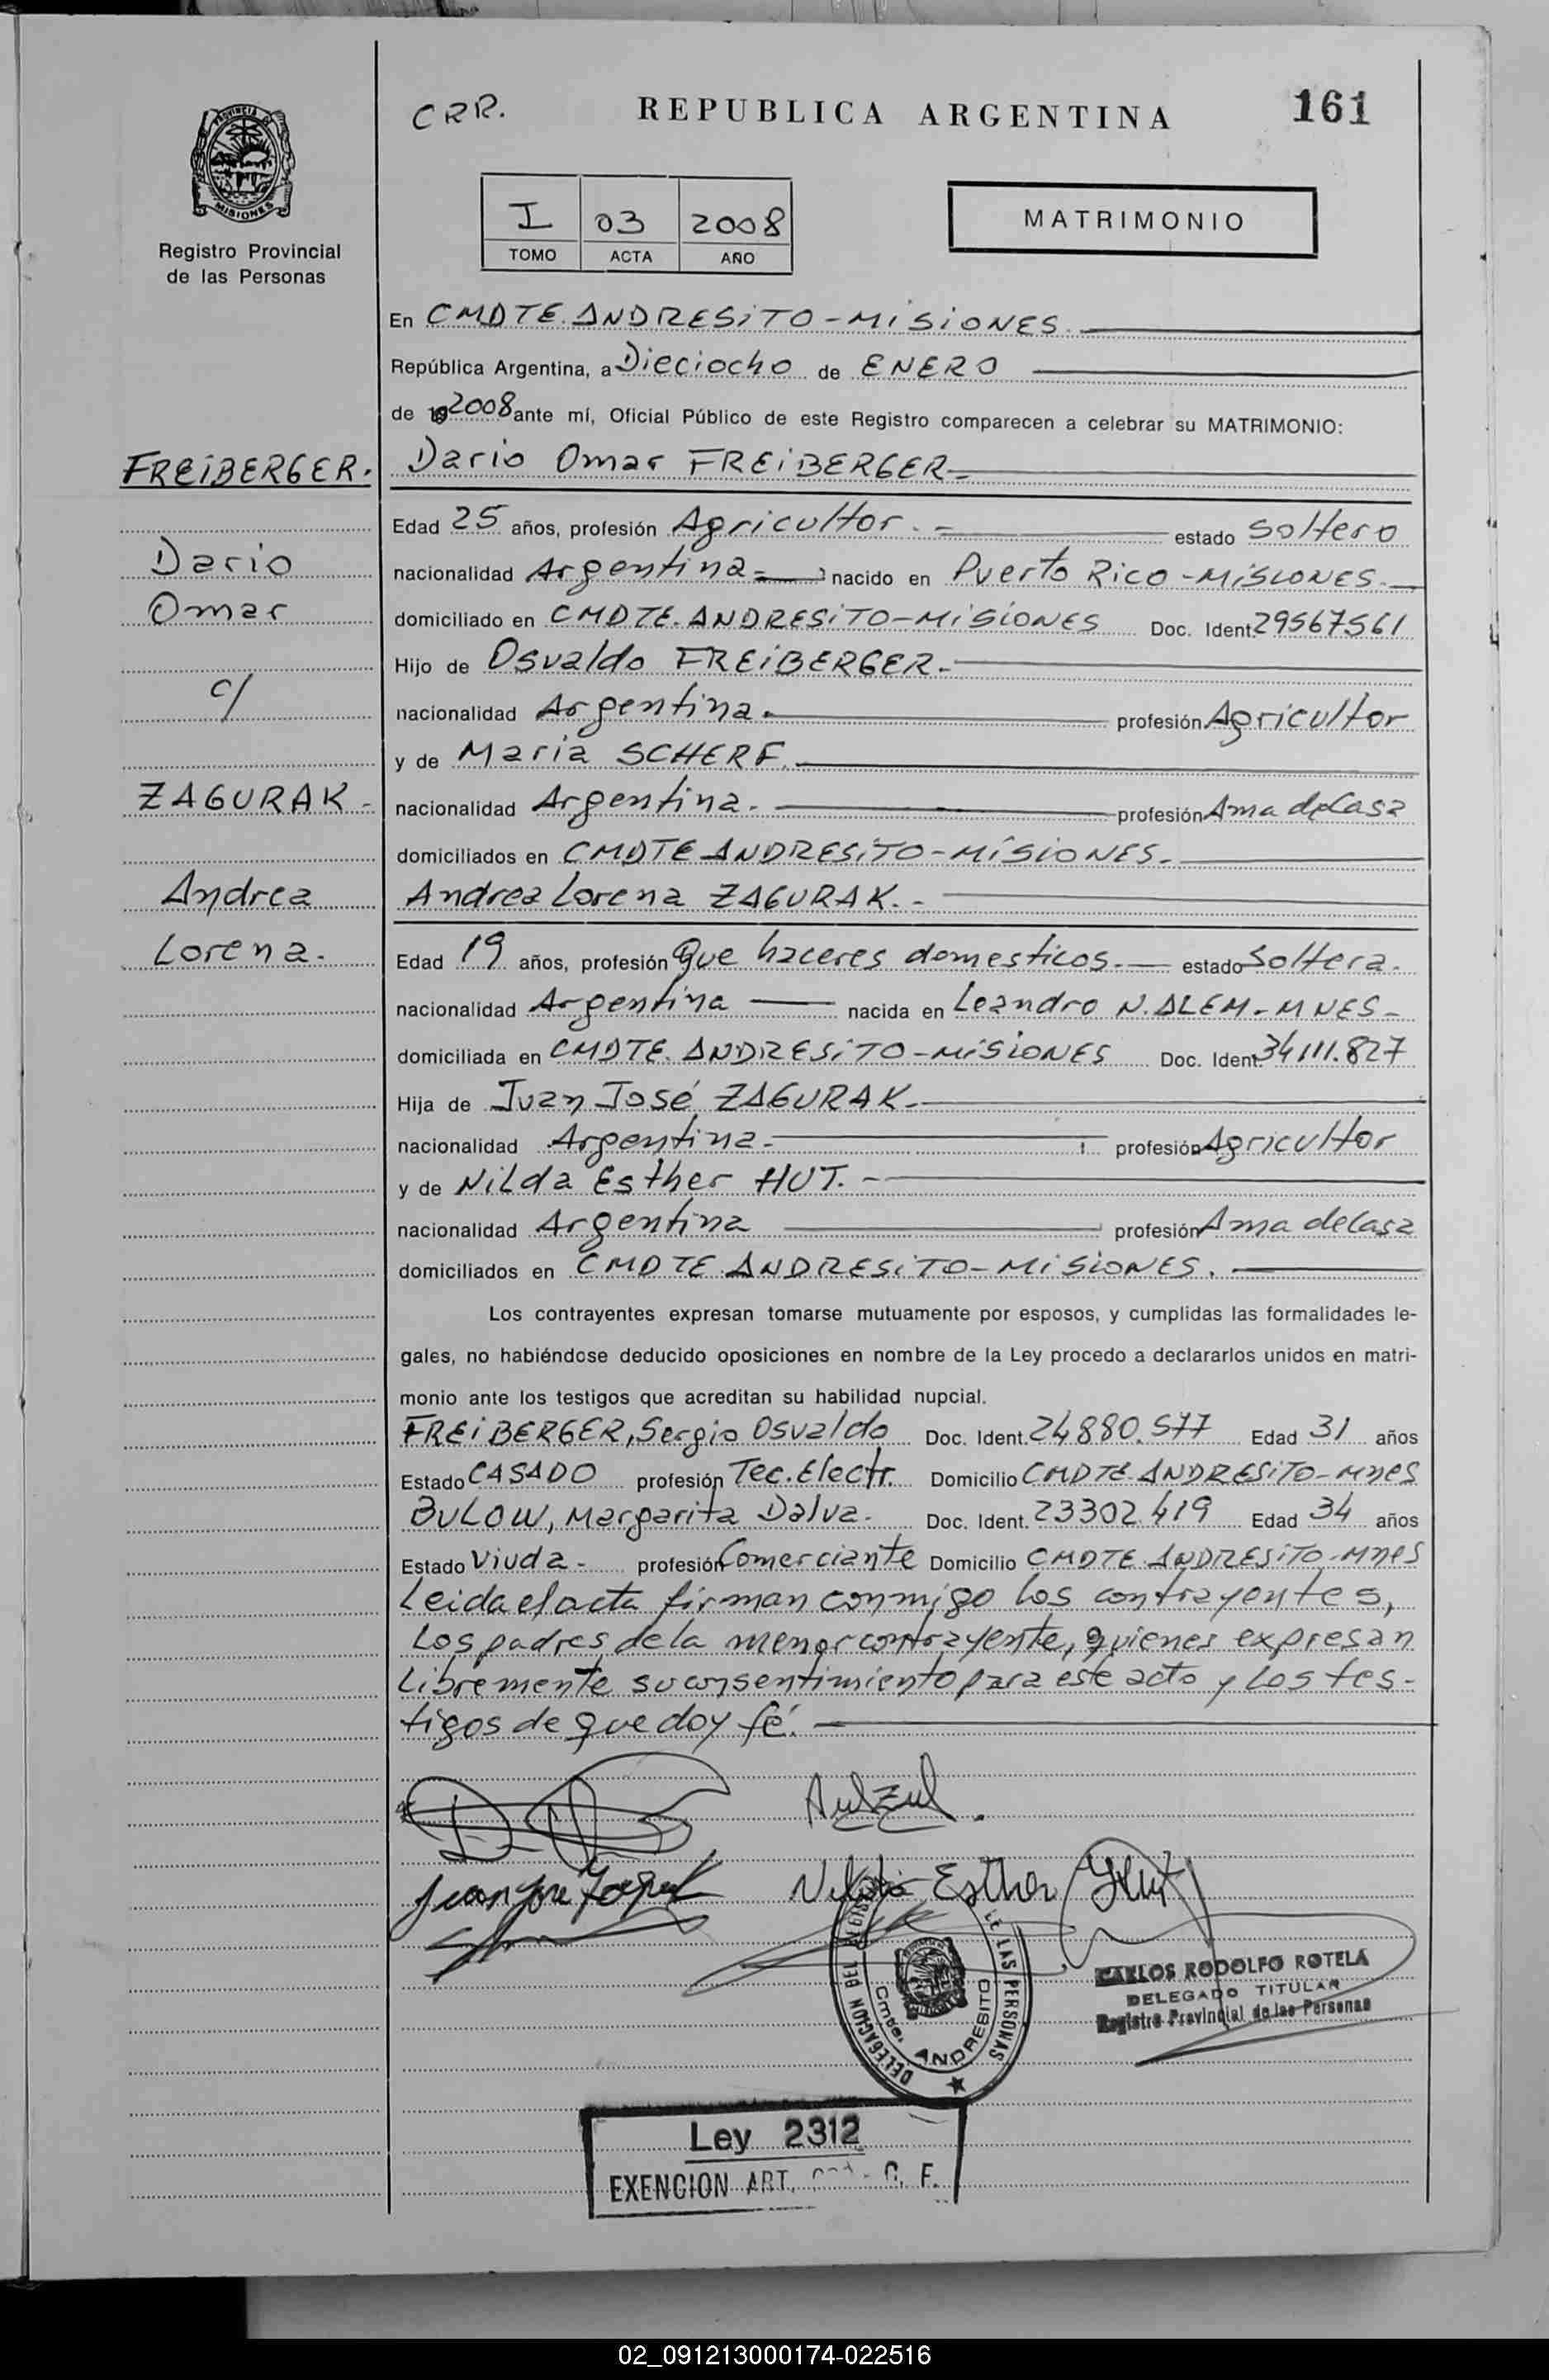 CRR.
REPUBLICA ARGENTINA
161
PROVINCIA DE
MISIONES
Registro Provincial
de las Personas
I 03 2008
TOMO ACTA AÑO
MATRIMONIO
En CMDTE. ANDRESiTO - MiSiONES.
República Argentina, a Dieciocho de ENERO
de 2008 ante mí, Oficial Público de este Registro comparecen a celebrar su MATRIMONIO:
FREiBERGER.
Dario Omar FREiBERGER-
Edad 25 años, profesión Agricultor. - estado soltero
Dario
nacionalidad Argentina- nacido en Puerto Rico - MiSiONES.
Omar
domiciliado en CMDTE. ANDRESiTO - MiSiONES Doc. Ident. 29567561
Hijo de Osvaldo FREiBERGER.
c/
nacionalidad Argentina. profesión Agricultor
y de Maria SCHERF.
ZAGURAK -
nacionalidad Argentina. profesión Ama de Casa
domiciliados en CMDTE ANDRESiTO - MiSiONES.
Andrea
Andrea Lorena ZAGURAK. -
Lorena.
Edad 19 años, profesión Que haceres domesticos. estado Soltera.
nacionalidad Argentina nacida en Leandro N. ALEM - MNES -
domiciliada en CMDTE. ANDRESiTO - MiSiONES Doc. Ident. 34111.827
Hija de Juan José ZAGURAK.
nacionalidad Argentina. profesión Agricultor
y de Nilda Esther HUT. -
nacionalidad Argentina profesión Ama de Casa
domiciliados en CMDTE ANDRESiTO - MiSiONES.
Los contrayentes expresan tomarse mutuamente por esposos, y cumplidas las formalidades le-
gales, no habiéndose deducido oposiciones en nombre de la Ley procedo a declararlos unidos en matri-
monio ante los testigos que acreditan su habilidad nupcial.
FREiBERGER, Sergio Osvaldo Doc. Ident. 24880.577 Edad 31 años
Estado CASADO profesión Tec. Electr. Domicilio CMDTE. ANDRESiTO - Mnes
BULOW, Margarita Dalva. Doc. Ident. 23302.419 Edad 34 años
Estado Viuda - profesión Comerciante Domicilio CMDTE ANDRESiTO - Mnes
Leida el acta firman conmigo los contrayentes,
Los padres de la menor contrayente, quienes expresan
Libremente su consentimiento para este acto y Los tes-
tigos de que doy fé.
Nilda Esther Hut
DELEGACION DEL REGISTRO DE LAS PERSONAS
Cmte. ANDRESITO
CARLOS RODOLFO ROTELA
DELEGADO TITULAR
Registro Provincial de las Personas
Ley 2312
EXENCION ART. C. F.
02_091213000174-022516